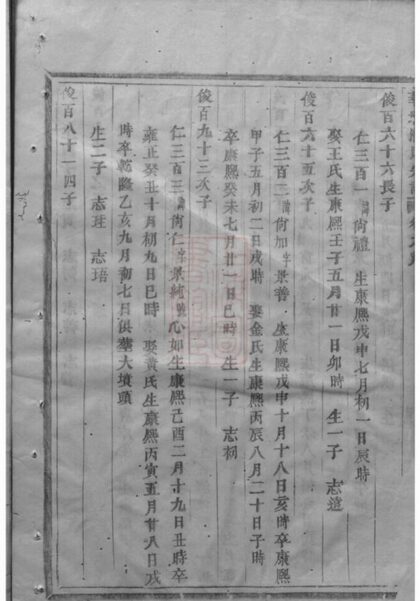 俊百六十六長子
仁三百一 諱尙禮 生康熙戊申七月初一日辰時
娶王氏生康熙壬子五月廿一日卯時 生一子 志遠
俊百六十五次子
仁三百二 諱尙加字景善 生康熙戊申十月十八日亥時卒康熙
甲子五月初二日戌時 娶金氏生康熙丙辰八月二十日子時
卒康熙癸未七月廿一日巳時 生一子 志初
俊百九十三次子
仁三百三 諱尙仁字景純號心如生康熙己酉二月十九日丑時卒
雍正癸丑十月初九日巳時 娶黃氏生康熙丙寅五月廿八日戌
時卒乾隆乙亥九月初七日俱葬大墳頭
生二子 志珏 志珸
俊百八十一四子